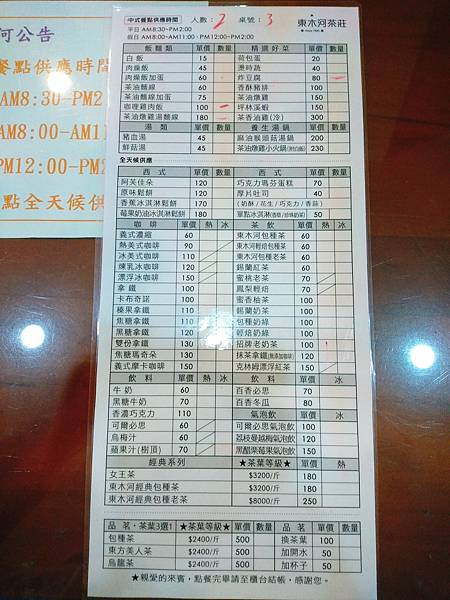 河公告
餐點供應時間
AM8:30-PM2
AM8:00-AM11
PM12:00-PM2
點全天候供
中式餐點供應時間 人數:2 桌號:3 東木河茶莊
平日 AM8:30~PM2:00
假日 AM8:00~AM11:00、PM12:00~PM2:00
飯麵類 單價 數量 精選好菜 單價 數量
白飯 15 荷包蛋 20
肉燥飯 45 燙時蔬 40
肉燥飯加蛋 60 炸豆腐 80
茶油麵線 60 香酥豬排 100
茶油麵線加蛋 75 茶油燉雞 150
咖哩雞肉飯 100 坪林溪蝦 150
茶油燉雞湯麵線 180 茶香油雞(冷) 300
湯類 單價 數量 養生湯鍋 單價 數量
豬血湯 45 麻油猴頭菇湯鍋 300
鮮菇湯 45 茶油燉雞小火鍋 300
全天候供應
西式 單價 數量 西式 單價 數量
阿芙佳朵 120 巧克力瑪芬蛋糕 70
原味鬆餅 120 厚片吐司 40
香蕉冰淇淋鬆餅 170 (奶酥 / 花生 / 巧克力 / 香蒜)
莓果奶油冰淇淋鬆餅 180 單點冰淇淋 50
咖啡 單價 熱 冰 茶飲 單價 熱 冰
義式濃縮 60 東木河包種茶 60
熱美式咖啡 90 東木河輕焙包種茶 60
冰美式咖啡 110 東木河老茶 70
煉乳冰咖啡 120 錫蘭紅茶 60
漂浮冰咖啡 150 蜜桃紅茶 70
拿鐵 100 鳳梨輕焙 70
卡布奇諾 100 蜜香柚茶 100
榛果拿鐵 110 錫蘭奶茶 100
焦糖拿鐵 110 包種奶綠 100
黑糖拿鐵 120 輕焙奶綠 100
雙份拿鐵 130 招牌老奶茶 100
焦糖瑪奇朵 130 抹茶拿鐵 160
義式摩卡咖啡 150 克林姆漂浮紅茶 150
飲料 單價 熱 冰 飲料 單價 冰
牛奶 60 百香必思 80
黑糖牛奶 70 百香冬瓜 80
香濃巧克力 110 氣泡飲 單價 冰
可爾必思 60 可爾必思氣泡飲 100
烏梅汁 60 荔枝蔓越梅氣泡飲 150
蘋果汁(樹頂) 70 黑醋栗莓果氣泡飲 150
經典系列 ★茶葉等級★ 單價 熱
女王茶 $3200/斤 180
東木河經典包種茶 $3200/斤 180
東木河經典包種老茶 $8000/斤 250
品名.茶葉3選1 ★茶葉等級★ 單價 數量 品名 單價 數量
包種茶 $2400/斤 500 換茶葉 100
東方美人茶 $2400/斤 500 加開水 50
烏龍茶 $2400/斤 500 加杯子 50
★親愛的來賓,點餐完畢請至櫃台結帳,感謝您。